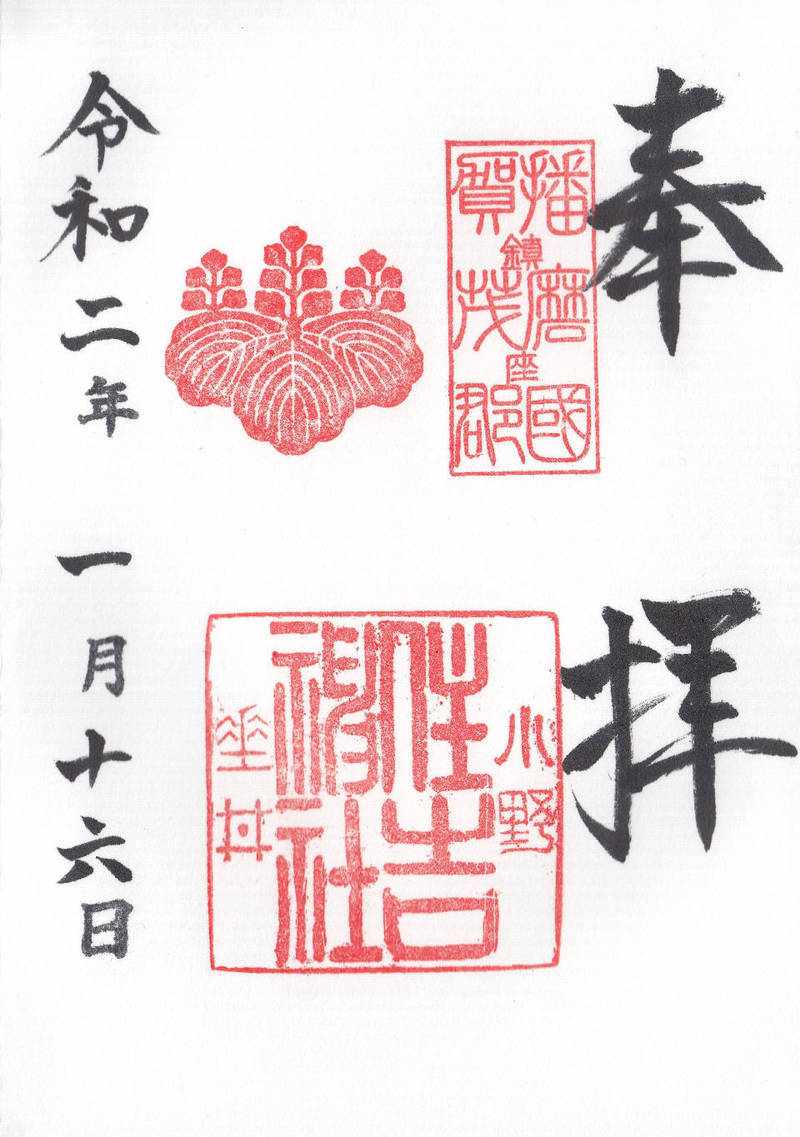 奉拝
播磨國
鎮座
賀茂郡
小野
住吉
神社
垂井
令和二年 一月十六日